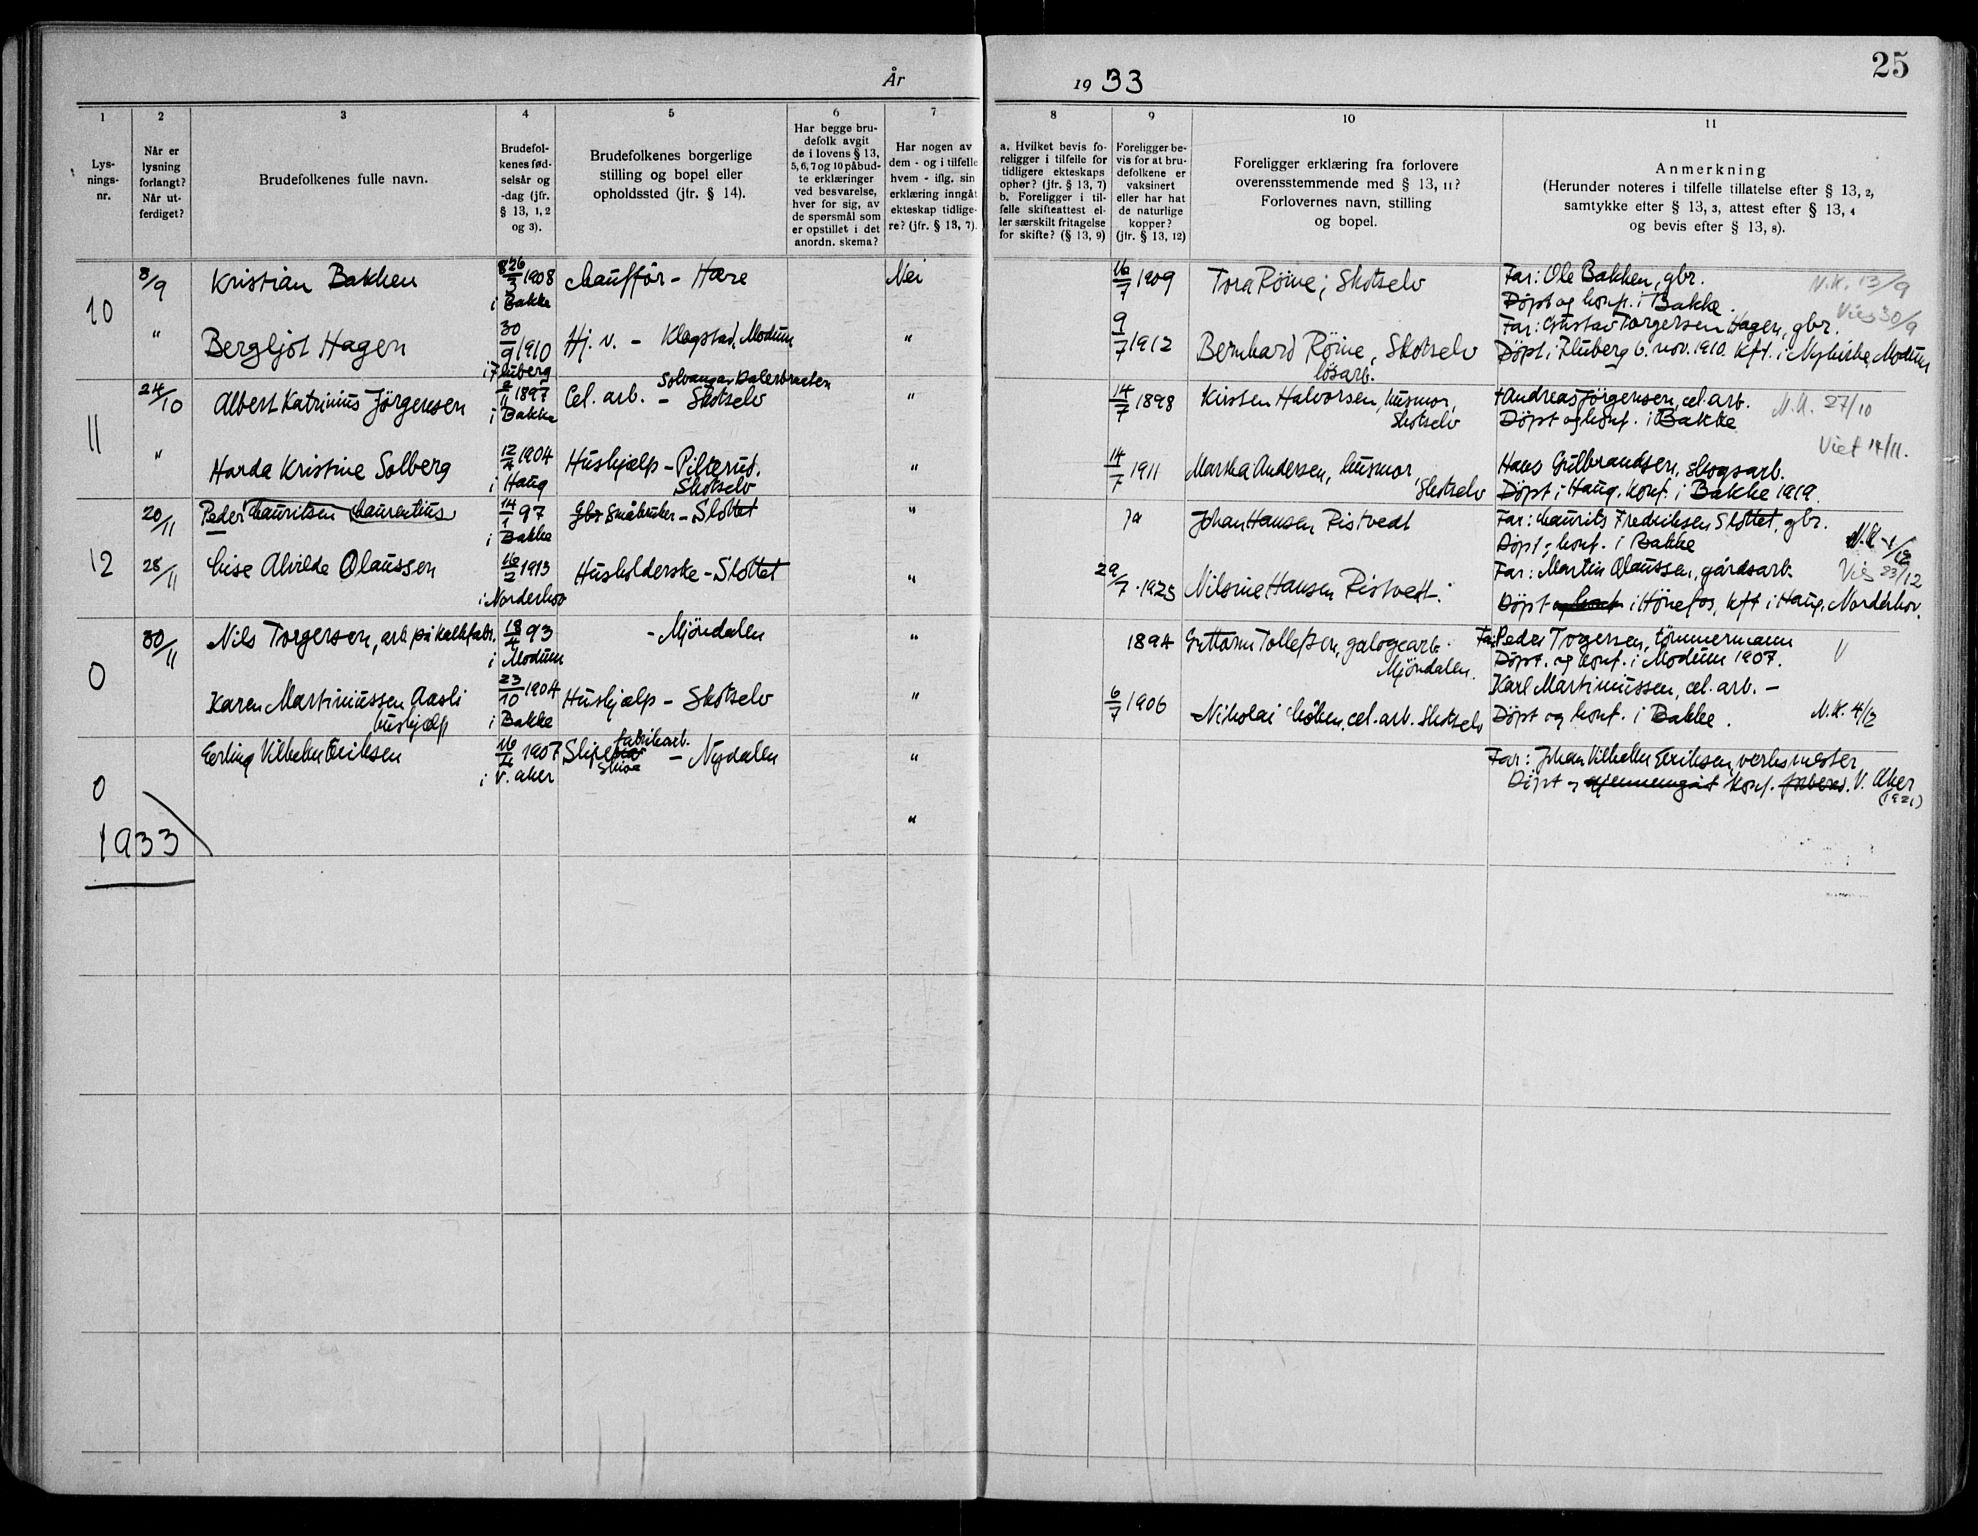 25
År 1933
1 2 3 4 5 6 7 8 9 10 11
Lys-
nings-
nr.
Når er
lysning
forlangt?
Når ut-
ferdiget?
Brudefolkenes fulle navn.
Brudefol-
kenes fød-
selsår og
-dag (jfr.
§ 13, 1, 2
og 3).
Brudefolkenes borgerlige
stilling og bopel eller
opholdssted (jfr. § 14).
Har begge bru-
defolk avgit
de i lovens § 13,
5, 6, 7 og 10 påbud-
te erklæringer
ved besvarelse,
hver for sig, av
de spørsmål som
er opstillet i det
anordn. skema?
Har nogen av
dem - og i tilfelle
hvem - iflg. sin
erklæring inngåt
ekteskap tidlige-
re? (jfr. § 13, 7).
a. Hvilket bevis fo-
religger i tilfelle for
tidligere ekteskaps
ophør? (jfr. § 13, 7)
b. Foreligger i til-
felle skifteattest el-
ler særskilt fritagelse
for skifte? (§ 13, 9)
Foreligger be-
vis for at bru-
defolkene er
vaksinert
eller har hat
de naturlige
kopper?
(jfr. § 13, 12)
Foreligger erklæring fra forlovere
overensstemmende med § 13, 11?
Forlovernes navn, stilling
og bopel.
Anmerkning
(Herunder noteres i tilfelle tillatelse efter § 13, 2,
samtykke efter § 13, 3, attest efter § 13, 4
og bevis efter § 13, 8).
10
8/9 Kristian Bakken 26/3 1908 i Bakke Chauffør - Hære Nei 16/7 1909 Tora Røine; Skotselv
Far: Ole Bakken, gbr. N.K. 13/9
Döpt og konf. i Bakke. Vies 30/9
" Bergljot Hagen 30/9 1910 i Fluberg Hj. v. - Klagstad, Modum " 9/7 1912 Bernhard Røine, Skotselv
løsarb.
Far: Gustav Torgersen Hagen, gbr.
Döpt i Fluberg 6. nov. 1910. Kft. i Nykirke, Modum
11
24/10 Albert Katrinius Jörgensen 2/11 1897 i Bakke Cel. arb. - Skotselv " 14/7 1898 Kirsten Halvorsen, husmor,
Skotselv
Andreas Jörgensen, cel. arb. N.K. 27/10
Döpt og konf. i Bakke
Viet 14/11.
" Harda Kristine Solberg 12/4 1904 i Haug Hushjælp - Pilterud.
Skotselv " 14/7 1911 Martha Andersen, husmor,
Skotselv
Hans Gulbrandsen, skogsarb.
Döpt i Haug. Konf. i Bakke 1919.
12
20/11 Peder Lauritsen Laurentius 14/1 97 i Bakke Gbr Småbruker - Slottet " Ja Johan Hansen Ristvedt
Far: Laurits Fredriksen Slottet, gbr.
Döpt og konf. i Bakke
28/11 Lise Alvilde Olaussen 16/2 1913 i Norderhov Husholderske - Slottet " 29/7 1925 Nilsine Hansen Ristvedt.
Far: Martin Olaussen, gårdsarb. Vies 23/12
Döpt og konf i Hönefos, Kft i Haug, Norderhov.
0
30/11 Nils Torgersen, arb. på kalkfabr. 18/4 93 i Modum - Mjöndalen " 1894 Guttorm Tollefsen, galogearb.
Mjöndalen.
Far: Peder Torgersen, tömmermann
Döpt. og konf. i Modum 1907.
Karen Martiniussen Aasli
hushjælp 23/10 1904 i Bakke Hushjælp - Skotselv " 6/7 1906 Nikolai Løken, cel. arb. Skotselv
Karl Martiniussen, cel. arb. -
Döpt og konf. i Bakke. N.K. 4/12
0
Erling Vilhelm Eriksen 16/4 1907 i V. Aker fabrikarb. - Nydalen "
Far: Johan Vilhelm Eriksen, verksmester
Döpt og gjennemgåt konf. V. Aker
(1921)
"
1933